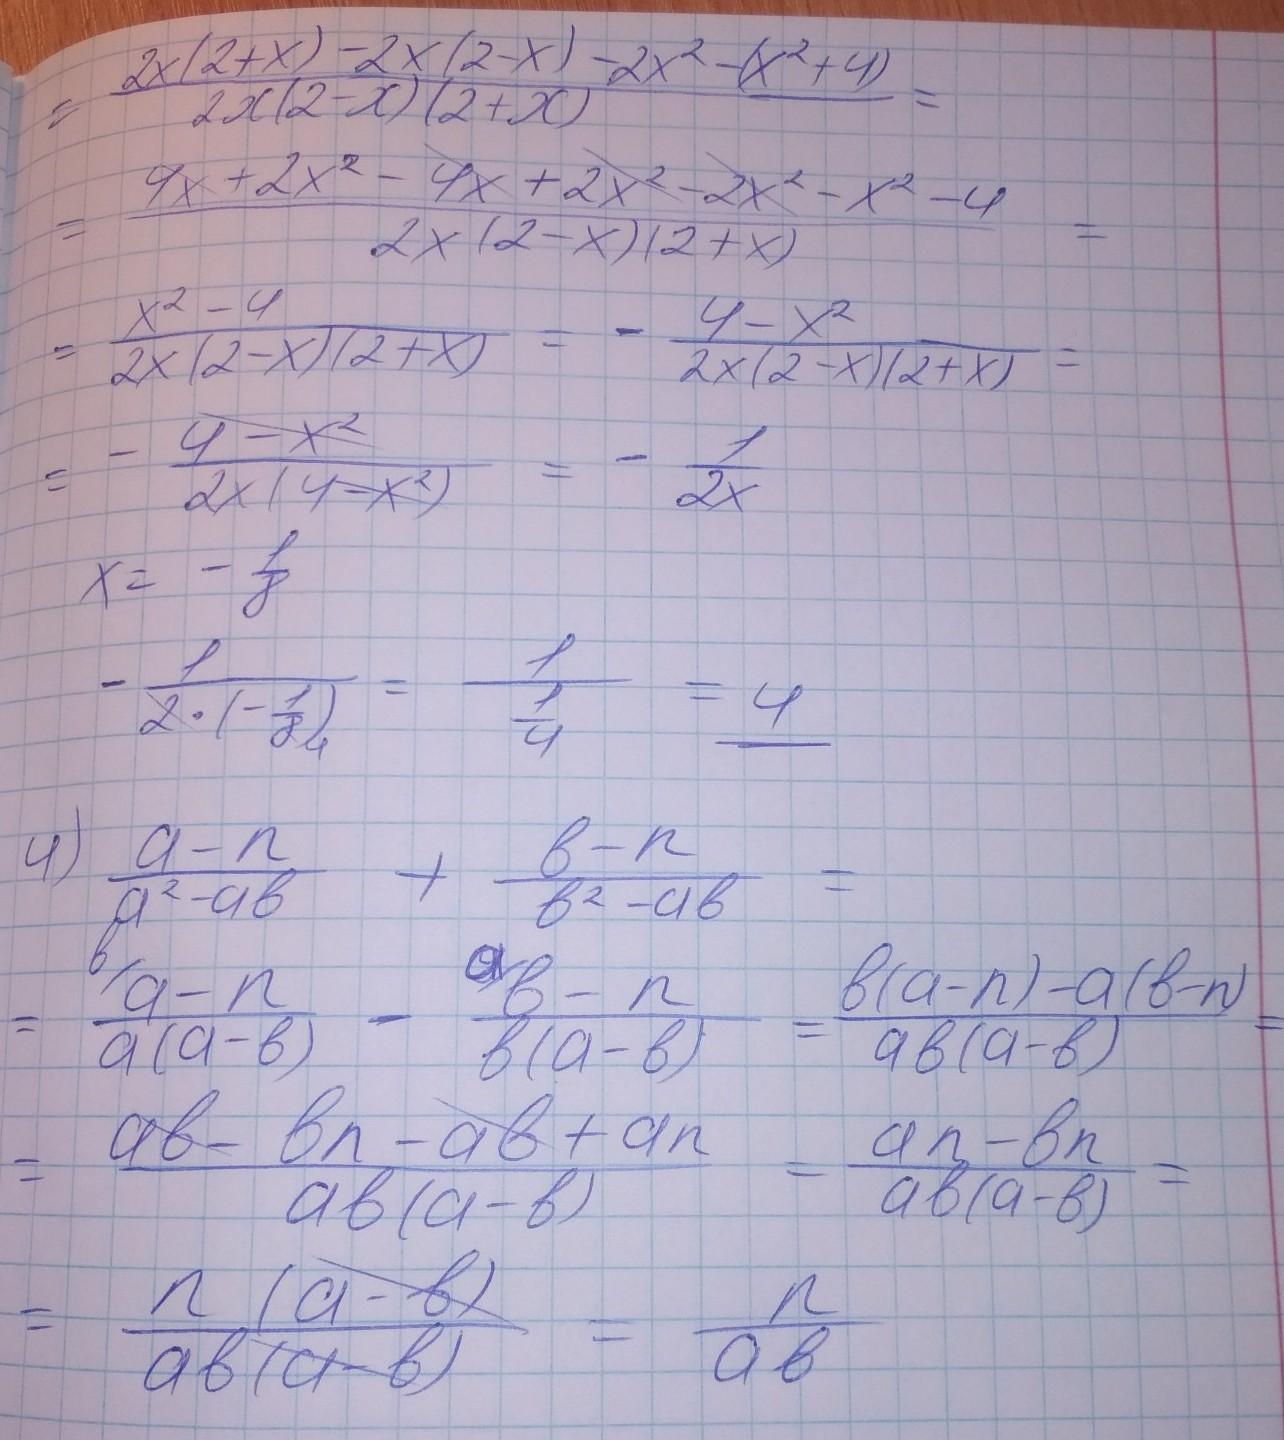 = (2x(2+x) -2x(2-x) -2x² -(x²+4)) / (2x(2-x)(2+x)) =
= (4x + 2x² - 4x + 2x² - 2x² - x² - 4) / (2x(2-x)(2+x)) =
= (x² - 4) / (2x(2-x)(2+x)) = - (4 - x²) / (2x(2-x)(2+x)) =
= - (4 - x²) / (2x(4-x²)) = - 1/(2x)
x = - 1/8
- 1 / (2·(-1/8)) 4 = 1 / (1/4) = 4
4) (a-n) / (a²-aв) + (в-n) / (в²-aв) =
= в/ (a-n) / (a(a-в)) - a/ (в-n) / (в(a-в)) = (в(a-n) -a(в-n)) / (aв(a-в)) =
= (aв - вn - aв + an) / (aв(a-в)) = (an - вn) / (aв(a-в)) =
= (n (a-в)) / (aв(a-в)) = n / (aв)